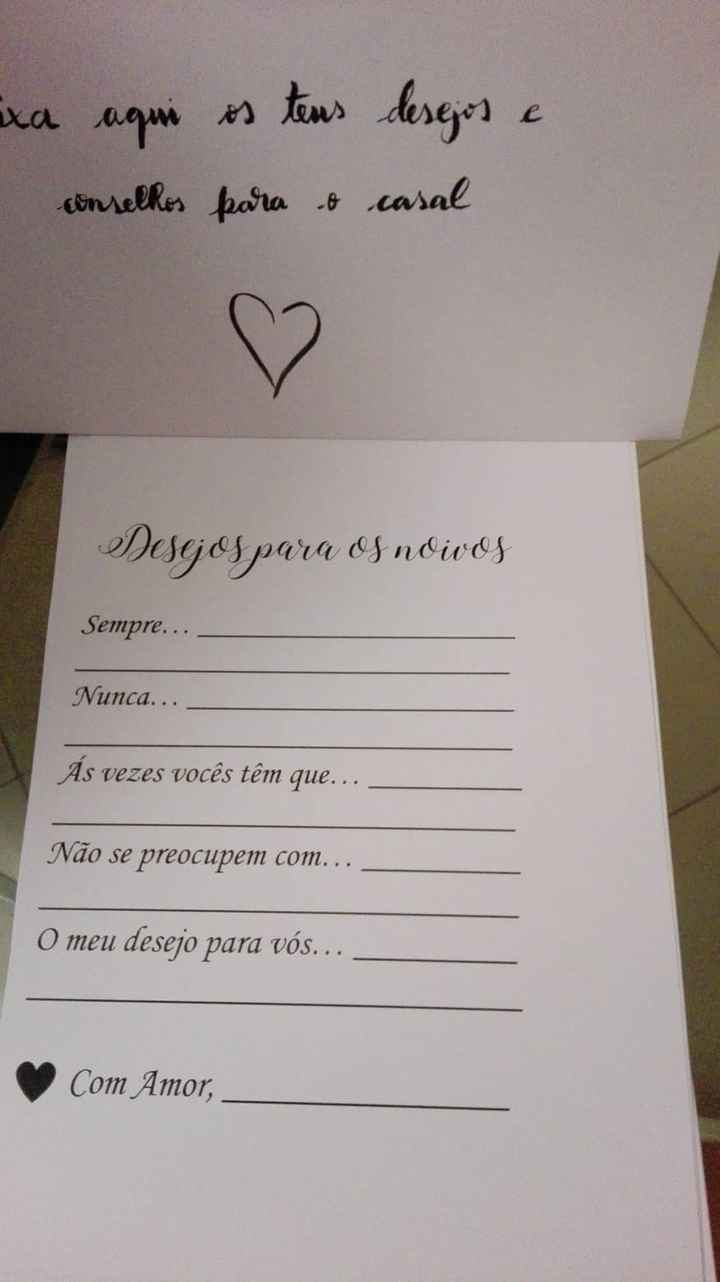 aqui os teus desejos e
conselhos para o casal
Desejos para os noivos
Sempre... 
Nunca... 
Ás vezes vocês têm que... 
Não se preocupem com... 
O meu desejo para vós... 
Com Amor,